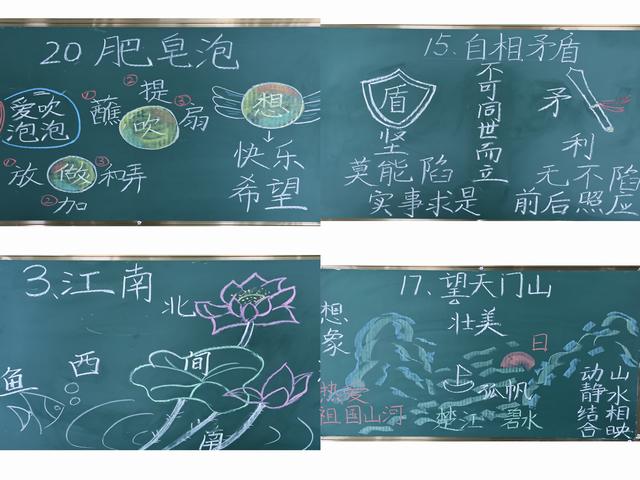 20 肥皂泡
② 提
爱吹
泡泡
① 蘸
吹
③ 扇
想
① 放
做
③ 和弄
② 加
快乐
希望
15. 自相矛盾
盾
不可同世而立
矛
坚
利
莫能陷
无不陷
实事求是
前后照应
3. 江南
北
西
间
鱼
南
17. 望天门山
想象
壮美
日
孤帆
热爱
祖国山河
楚江
碧水
动静结合
山水相映